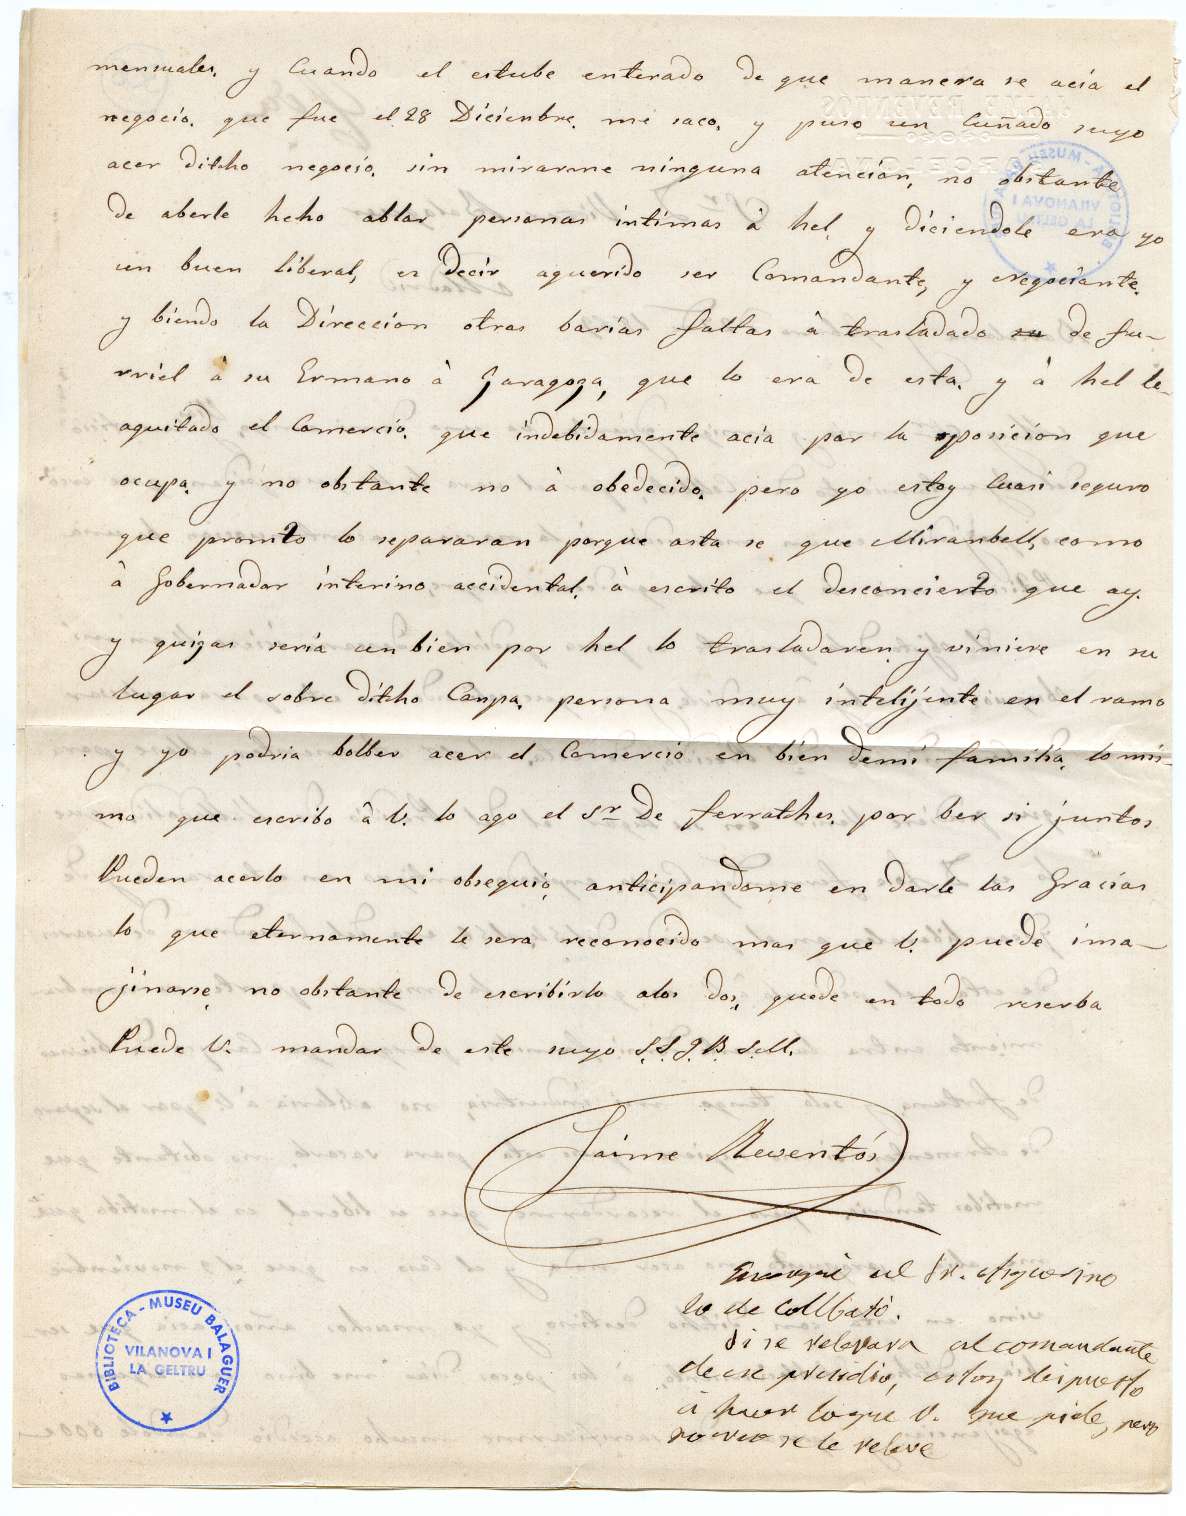 mensuales. y Cuando el estube enterado de que manera se acia el
negocio. que fue el 28 Diciembre. me saco, y puso un Cuñado suyo
acer ditcho negocio. sin mirarme ninguna atencion, no obstante
de aberle hcho ablar personas intimas à hel, y diciendole era yo
un buen liberal, es decir aquerido ser Comandante, y Negociante.
y biendo la Direccion otras barias faltas à trasladado su de fu-
rriel à su Ermano à Zaragoza, que lo era de esta. y à hel le-
aquitado el Comercio. que indebidamente acia por la posicion que
ocupa. y no obstante no à obedecido. pero yo estoy Cuasi seguro
que promto lo separaran porque asta se que Miranbell, como
à Gobernador interino, accidental. à escrito el desconcierto que ay.
y quizas seria un bien por hel lo trasladaren y viniere en su
lugar el sobre ditcho Canpa. persona muy intelijente en el ramo
y yo podria bolber acer el Comercio en bien demi familia, lo mis-
mo que escribo â V. lo ago el Sr. De Ferratches. por ber si juntos
Pueden acerlo en mi obsequio, anticipandome en darle las Gracias
lo que eternamente le sera reconocido mas que V. puede ima-
jinarse, no obstante de escribirlo alos dos, quede en todo reserba
Puede V. mandar de este suyo S.S.Q.B.S.M.
Jaime Reventós
al Sr.
lo de Collbató.
Si se relevara al comandante
de ese presidio, estoy dispuesto
á hacer lo que V. me pide, pero
no creo se le releve
BIBLIOTECA - MUSEU BALAGUER
VILANOVA I
LA GELTRU